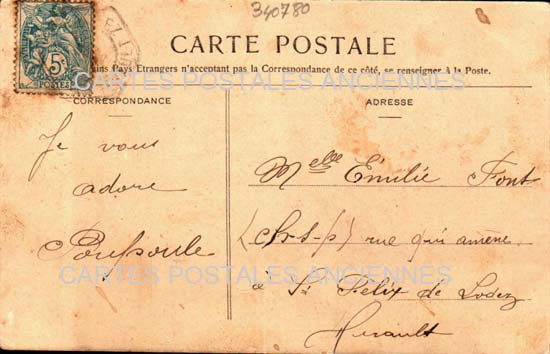 340780
5c
POSTES
CARTE POSTALE
ains Pays Etrangers n'acceptant pas la Correspondance de ce côté, se renseigner à la Poste.
CARTES POSTALES ANCIENNES
CORRESPONDANCE
ADRESSE
Je vous
adore
Poupoule
Melle Emilie Font
rue qui amène
à St Felix de Lodez
Herault
CARTES POSTALES ANCIENNES